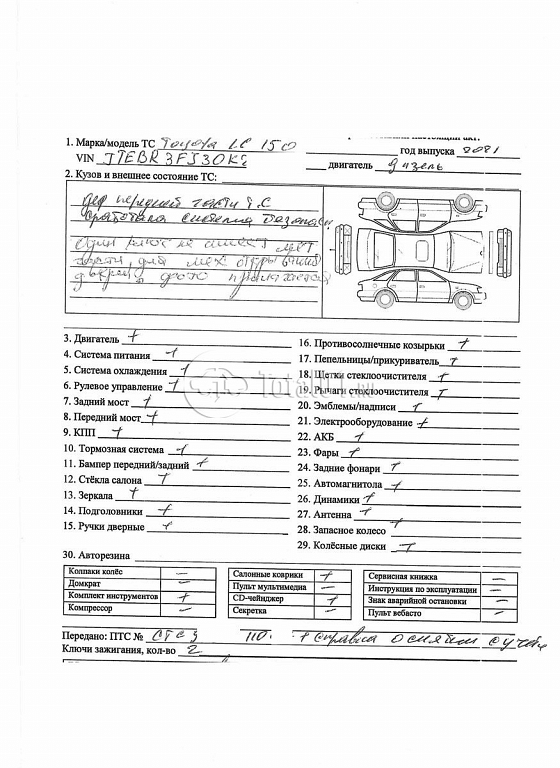 1. Марка/модель ТС Toyota LC 150 год выпуска 2021
VIN JTEBR3FJ30K двигатель дизель
2. Кузов и внешнее состояние ТС:
передней части т.с
сработала система
Один ключ не имеет
для мех
дверей, фото прилагается
3. Двигатель +
4. Система питания +
5. Система охлаждения +
6. Рулевое управление +
7. Задний мост +
8. Передний мост +
9. КПП +
10. Тормозная система +
11. Бампер передний/задний +
12. Стёкла салона +
13. Зеркала +
14. Подголовники +
15. Ручки дверные +
16. Противосолнечные козырьки +
17. Пепельницы/прикуриватель +
18. Щетки стеклоочистителя +
19. Рычаги стеклоочистителя +
20. Эмблемы/надписи +
21. Электрооборудование +
22. АКБ +
23. Фары +
24. Задние фонари +
25. Автомагнитола +
26. Динамики +
27. Антенна +
28. Запасное колесо
29. Колёсные диски +
30. Авторезина
Колпаки колёс —
Домкрат —
Комплект инструментов +
Компрессор —
Салонные коврики +
Пульт мультимедиа —
CD-чейнджер +
Секретка —
Сервисная книжка —
Инструкция по эксплуатации —
Знак аварийной остановки —
Пульт вебасто —
Передано: ПТС № СТС
Ключи зажигания, кол-во 2